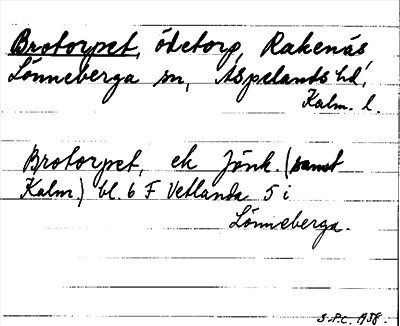 Brotorpet, ödetorp, Rakenäs
Lönneberga sn, Aspelands hd,
Kalm. l.
Brotorpet, ek Jönk. (samt
Kalm.) bl. 6 F Vetlanda 5 i
Lönneberga.
S.P.C. 1938.